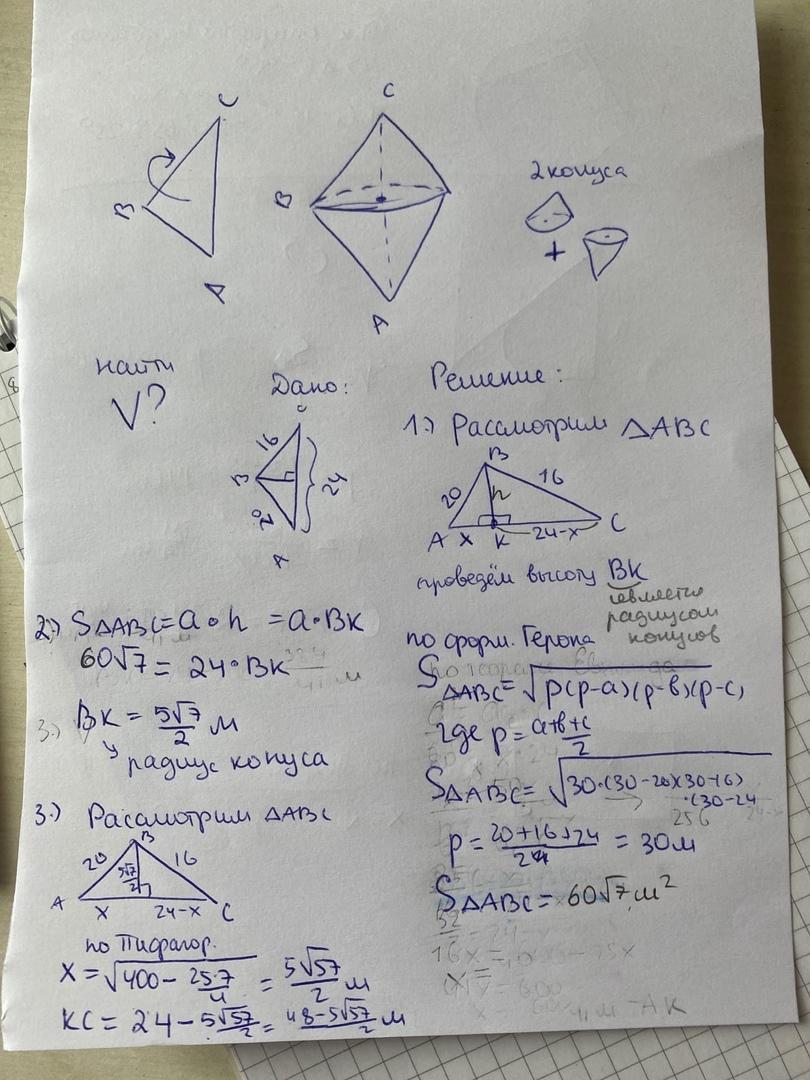 C
B
A
C
B
A
2 конуса
+
найти
V?
Дано:
C
16
B
24
20
A
Решение:
1.) Рассмотрим △ABC
B
20
h
16
A x K 24-x C
проведём высоту BK
является
радиусом
конусов
по форм. Герона
S△ABC = √p(p-a)(p-b)(p-c)
где p = a+b+c/2
S△ABC = √30·(30-20)(30-16)
·(30-24
256
p = 20+16+24/2 = 30м
S△ABC = 60√7 м²
2.) S△ABC = a·h = a·BK
60√7 = 24·BK
BK = 5√7/2 м
радиус конуса
3.) Рассмотрим △ABC
B
20
5√7/2
16
A x 24-x C
по Пифагор.
x = √400 - 25·7/4 = 5√57/2 м
KC = 24 - 5√57/2 = 48-5√57/2 м